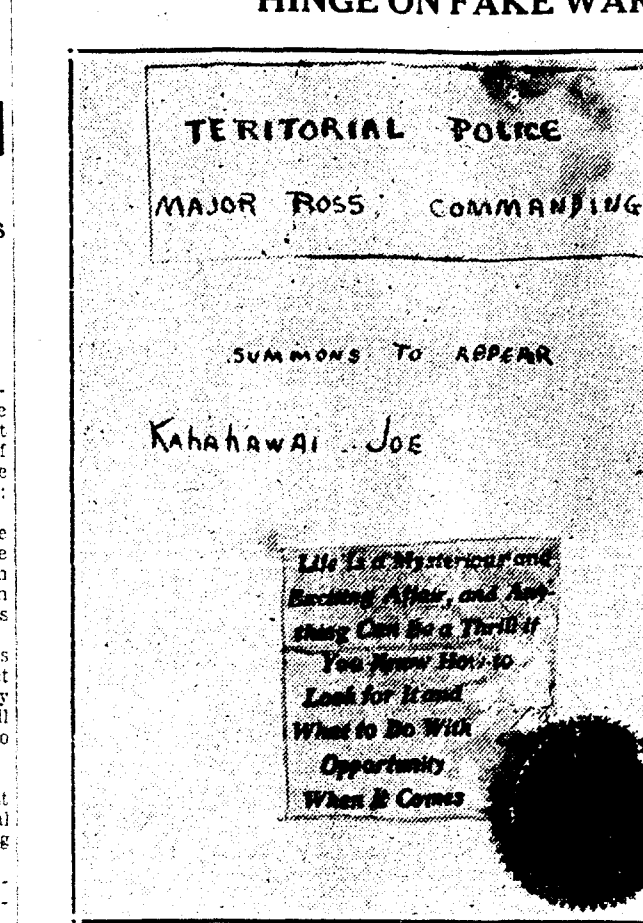 HINGE ON FAKE WAR
TERITORIAL POLICE
MAJOR ROSS, COMMANDING
SUMMONS TO APPEAR
KAhAhAWAI JOE
Life Is a Mysterious and
Exciting Affair, and Any-
thing Can Be a Thrill if
You Know How to
Look for It and
What to Do With
Opportunity
When It Comes